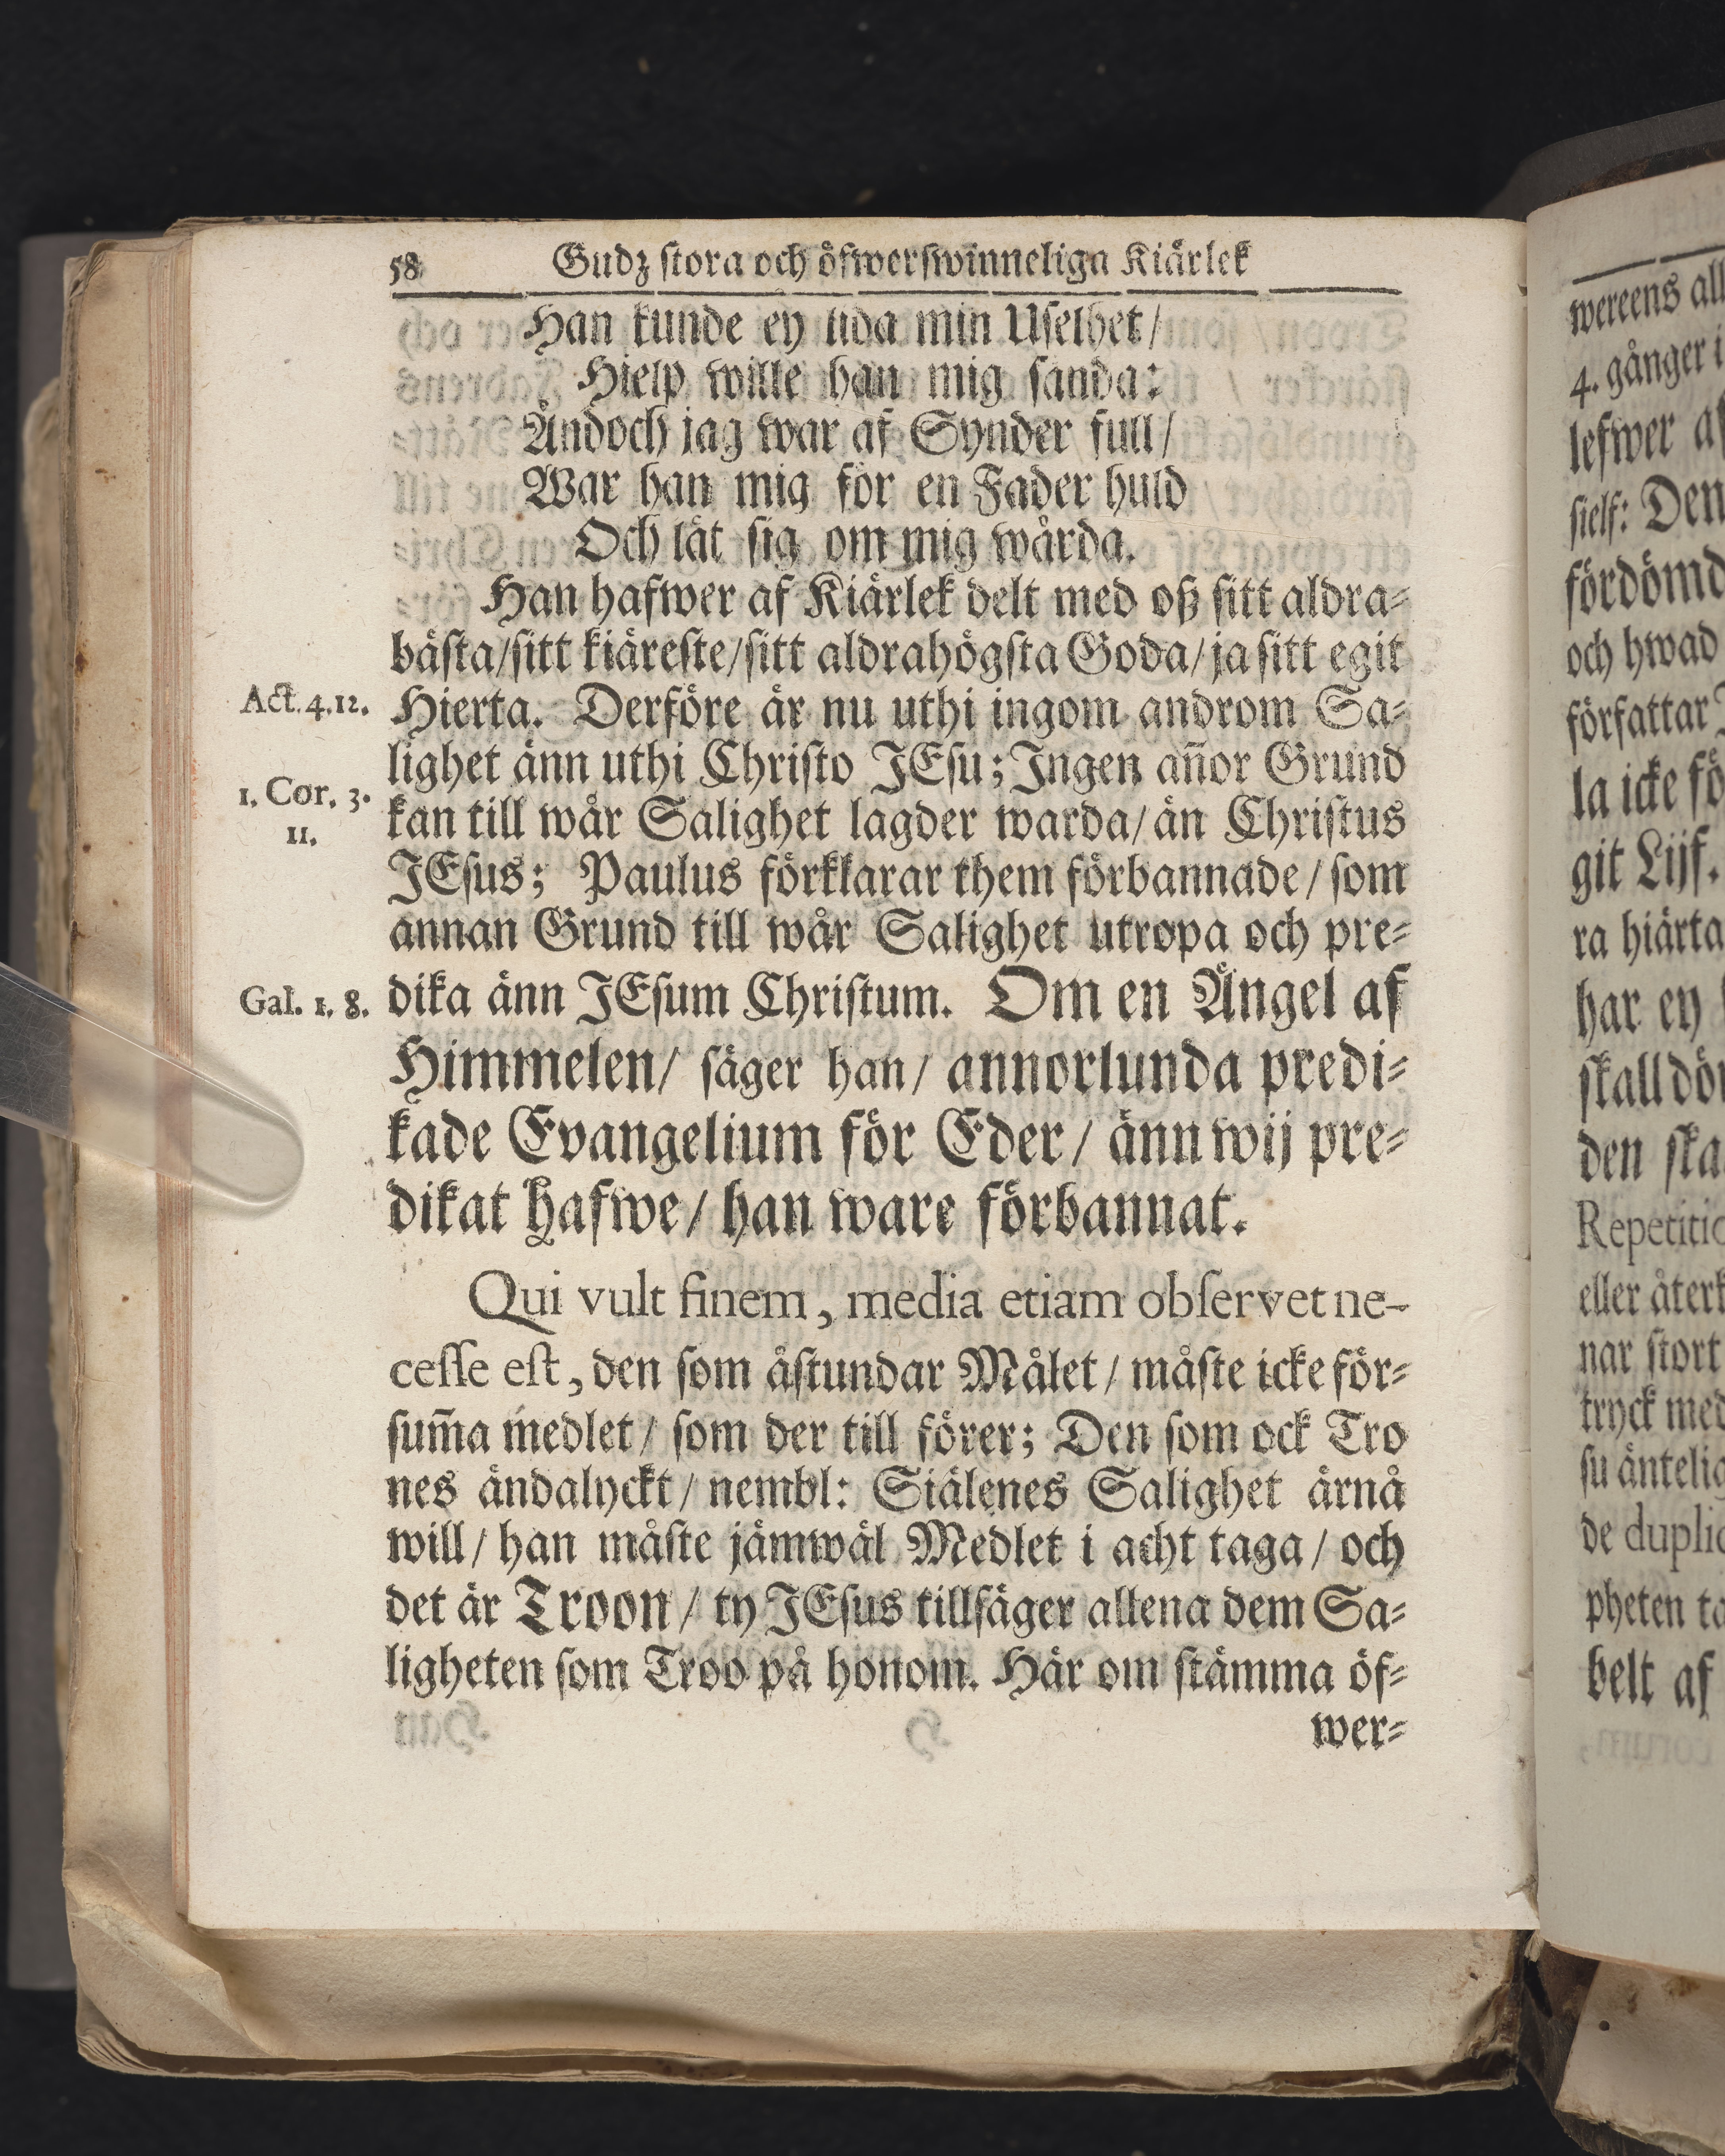 58 Gudz ſtora och öfwerſwinneliga Kiärlek
Han kunde ey lida min Uſelhet/
Hielp wille han mig ſända:
Ändoch jag war af Synder full/
War han mig för en Fader huld
Och lät ſig om mig wårda.
Han hafwer af Kiärlek delt med oß ſitt aldra-
bäſta/ſitt kiäreſte/ſitt aldrahögſta Goda/ja ſitt egit
Act. 4.12.
Hierta. Derföre är nu uthi ingom androm Sa-
lighet änn uthi Chriſto JEſu; Ingen an̄or Grund
1. Cor. 3.
11.
kan till wår Salighet lagder warda/ än Chriſtus
JEſus; Paulus förklarar them förbannade/ ſom
annan Grund till wår Salighet utropa och pre-
Gal. 1. 8.
dika änn JEſum Chriſtum. Om en Ängel af
Himmelen/ ſäger han/ annorlunda predi-
kade Evangelium för Eder/ änn wij pre-
dikat hafwe/ han ware förbannat.
Qui vult finem, media etiam obſervet ne-
ceſſe eſt, den ſom åſtundar Målet/ måſte icke för-
ſum̄a medlet/ ſom der till förer; Den ſom ock Tro
nes ändalyckt/ nembl: Siälenes Salighet ärnå
will/ han måſte jämwäl Medlet i acht taga/ och
det är Troon/ ty JEſus tillſäger allena dem Sa-
ligheten ſom Troo på honom. Här om ſtämma öf-
wer-
wereens all
4. gånger i
lefwer af
ſielf: Den
fördömd
och hwad
författar
la icke fö
git Lijf.
ra hiärta
har ey
ſkall dö
den ſka
Repetitio
eller återk
nar ſtort
tryck med
ſu äntelig
de duplic
pheten ta
belt af